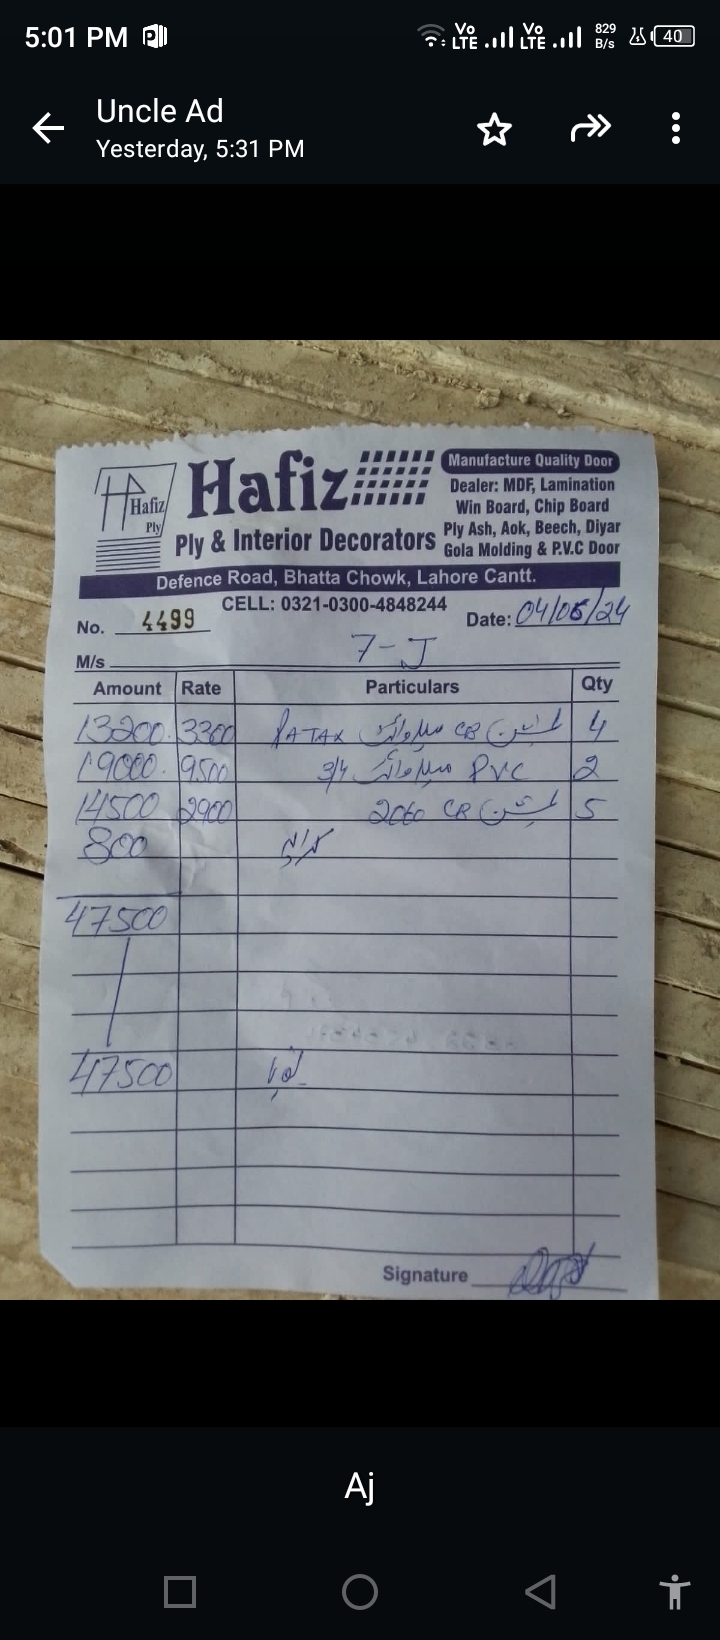 5:01 PM
Vo LTE Vo LTE 829 B/s 40
Uncle Ad
Yesterday, 5:31 PM
Hafiz Ply
Hafiz
Ply & Interior Decorators
Manufacture Quality Door
Dealer: MDF, Lamination
Win Board, Chip Board
Ply Ash, Aok, Beech, Diyar
Gola Molding & P.V.C Door
Defence Road, Bhatta Chowk, Lahore Cantt.
CELL: 0321-0300-4848244
No. 4499
Date: 04/06/24
M/s 7-J
Amount Rate Particulars Qty
13200 3300 CB PATAX 4
19000 9500 PVC 3/4 2
14500 2900 CB 2060 5
800 کرایہ
47500
47500
Signature
Aj